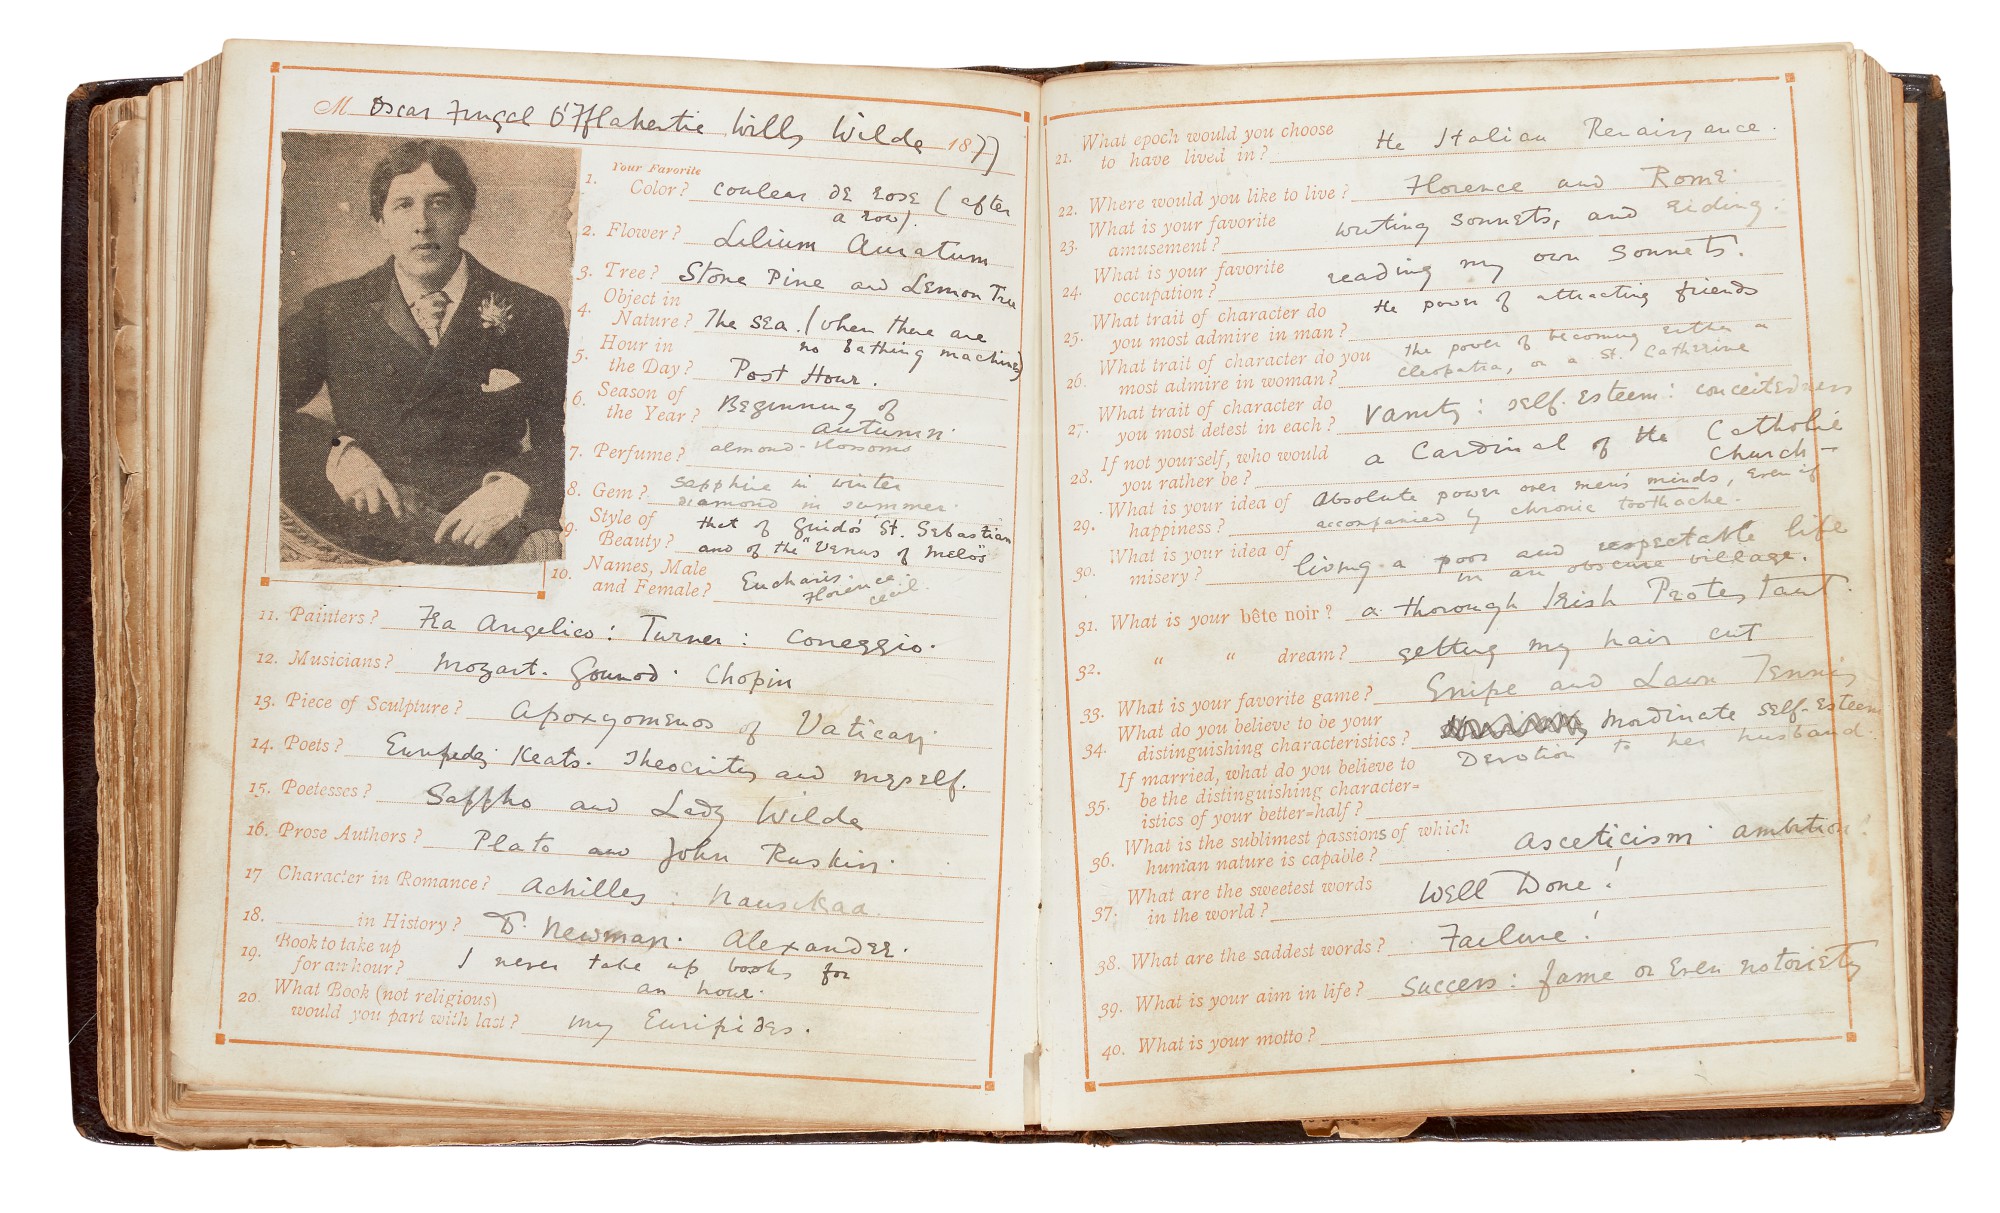 M Oscar Fingal O'Fflahertie Wills Wilde 1877
Your Favorite
1. Color? couleur de rose (after
a row).
2. Flower? Lilium Auratum
3. Tree? Stone Pine and Lemon Tree
4. Object in
Nature? The sea. (when there are
no bathing machines)
5. Hour in
the Day? Post Hour.
6. Season of
the Year? Beginning of
autumn.
7. Perfume? almond-blossoms
8. Gem? sapphire in winter
diamond in summer.
9. Style of
Beauty? that of Guido's St. Sebastian
and of the "Venus of Melos"
10. Names, Male
and Female? Eucharis.
Florence
Cecil.
11. Painters? Fra Angelico: Turner: Correggio.
12. Musicians? Mozart. Gounod. Chopin
13. Piece of Sculpture? Apoxyomenos of Vatican
14. Poets? Euripides Keats. Theocritus and myself.
15. Poetesses? Sappho and Lady Wilde
16. Prose Authors? Plato and John Ruskin.
17 Character in Romance? Achilles: Nausikaa.
18. in History? Dr. Newman. Alexander.
19. Book to take up
for an hour? I never take up books for
an hour.
20. What Book (not religious)
would you part with last? my Euripides.
21. What epoch would you choose
to have lived in? the Italian Renaissance.
22. Where would you like to live? Florence and Rome.
23. What is your favorite
amusement? writing sonnets, and riding.
24. What is your favorite
occupation? reading my own sonnets.
25. What trait of character do
you most admire in man? the power of attracting friends
26. What trait of character do you
most admire in woman? the power of becoming either a
Cleopatra, or a St. Catherine
27. What trait of character do
you most detest in each? Vanity: self-esteem: conceitedness
28. If not yourself, who would
you rather be? a Cardinal of the Catholic
Church—
29. What is your idea of
happiness? Absolute power over men's minds, even if
accompanied by chronic toothache.
30. What is your idea of
misery? living a poor and respectable life
in an obscure village.
31. What is your bête noir? a thorough Irish Protestant.
32. " " dream? getting my hair cut
33. What is your favorite game? Snipe and Lawn Tennis
34. What do you believe to be your
distinguishing characteristics? inordinate self-esteem
35. If married, what do you believe to
be the distinguishing character=
istics of your better=half? Devotion to her husband.
36. What is the sublimest passions of which
human nature is capable? asceticism. ambition!
37. What are the sweetest words
in the world? Well Done!
38. What are the saddest words? Failure!
39. What is your aim in life? success: fame or even notoriety
40. What is your motto?